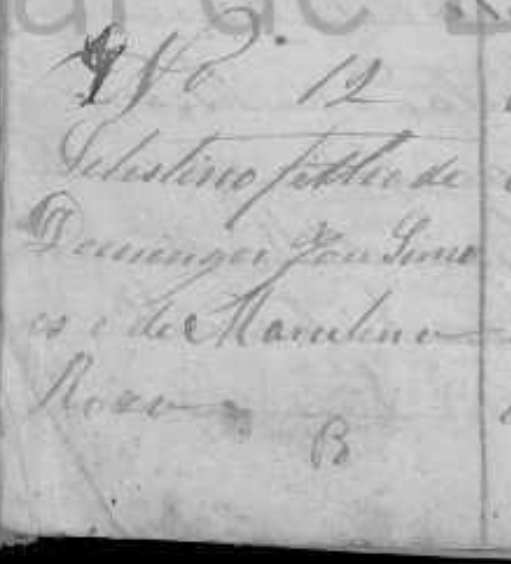 Nº 12
Selestino filho de
Domingos João Simo
es e de Marcelina
Roza
B